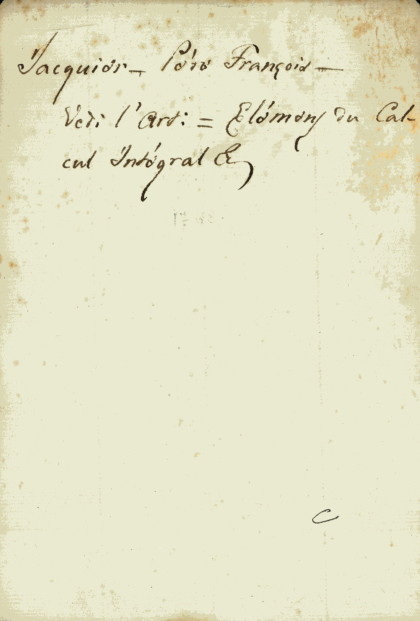 Jacquier - Père François -
Vedi l'Art: = Élémens du Cal-
cul Intégral &
C